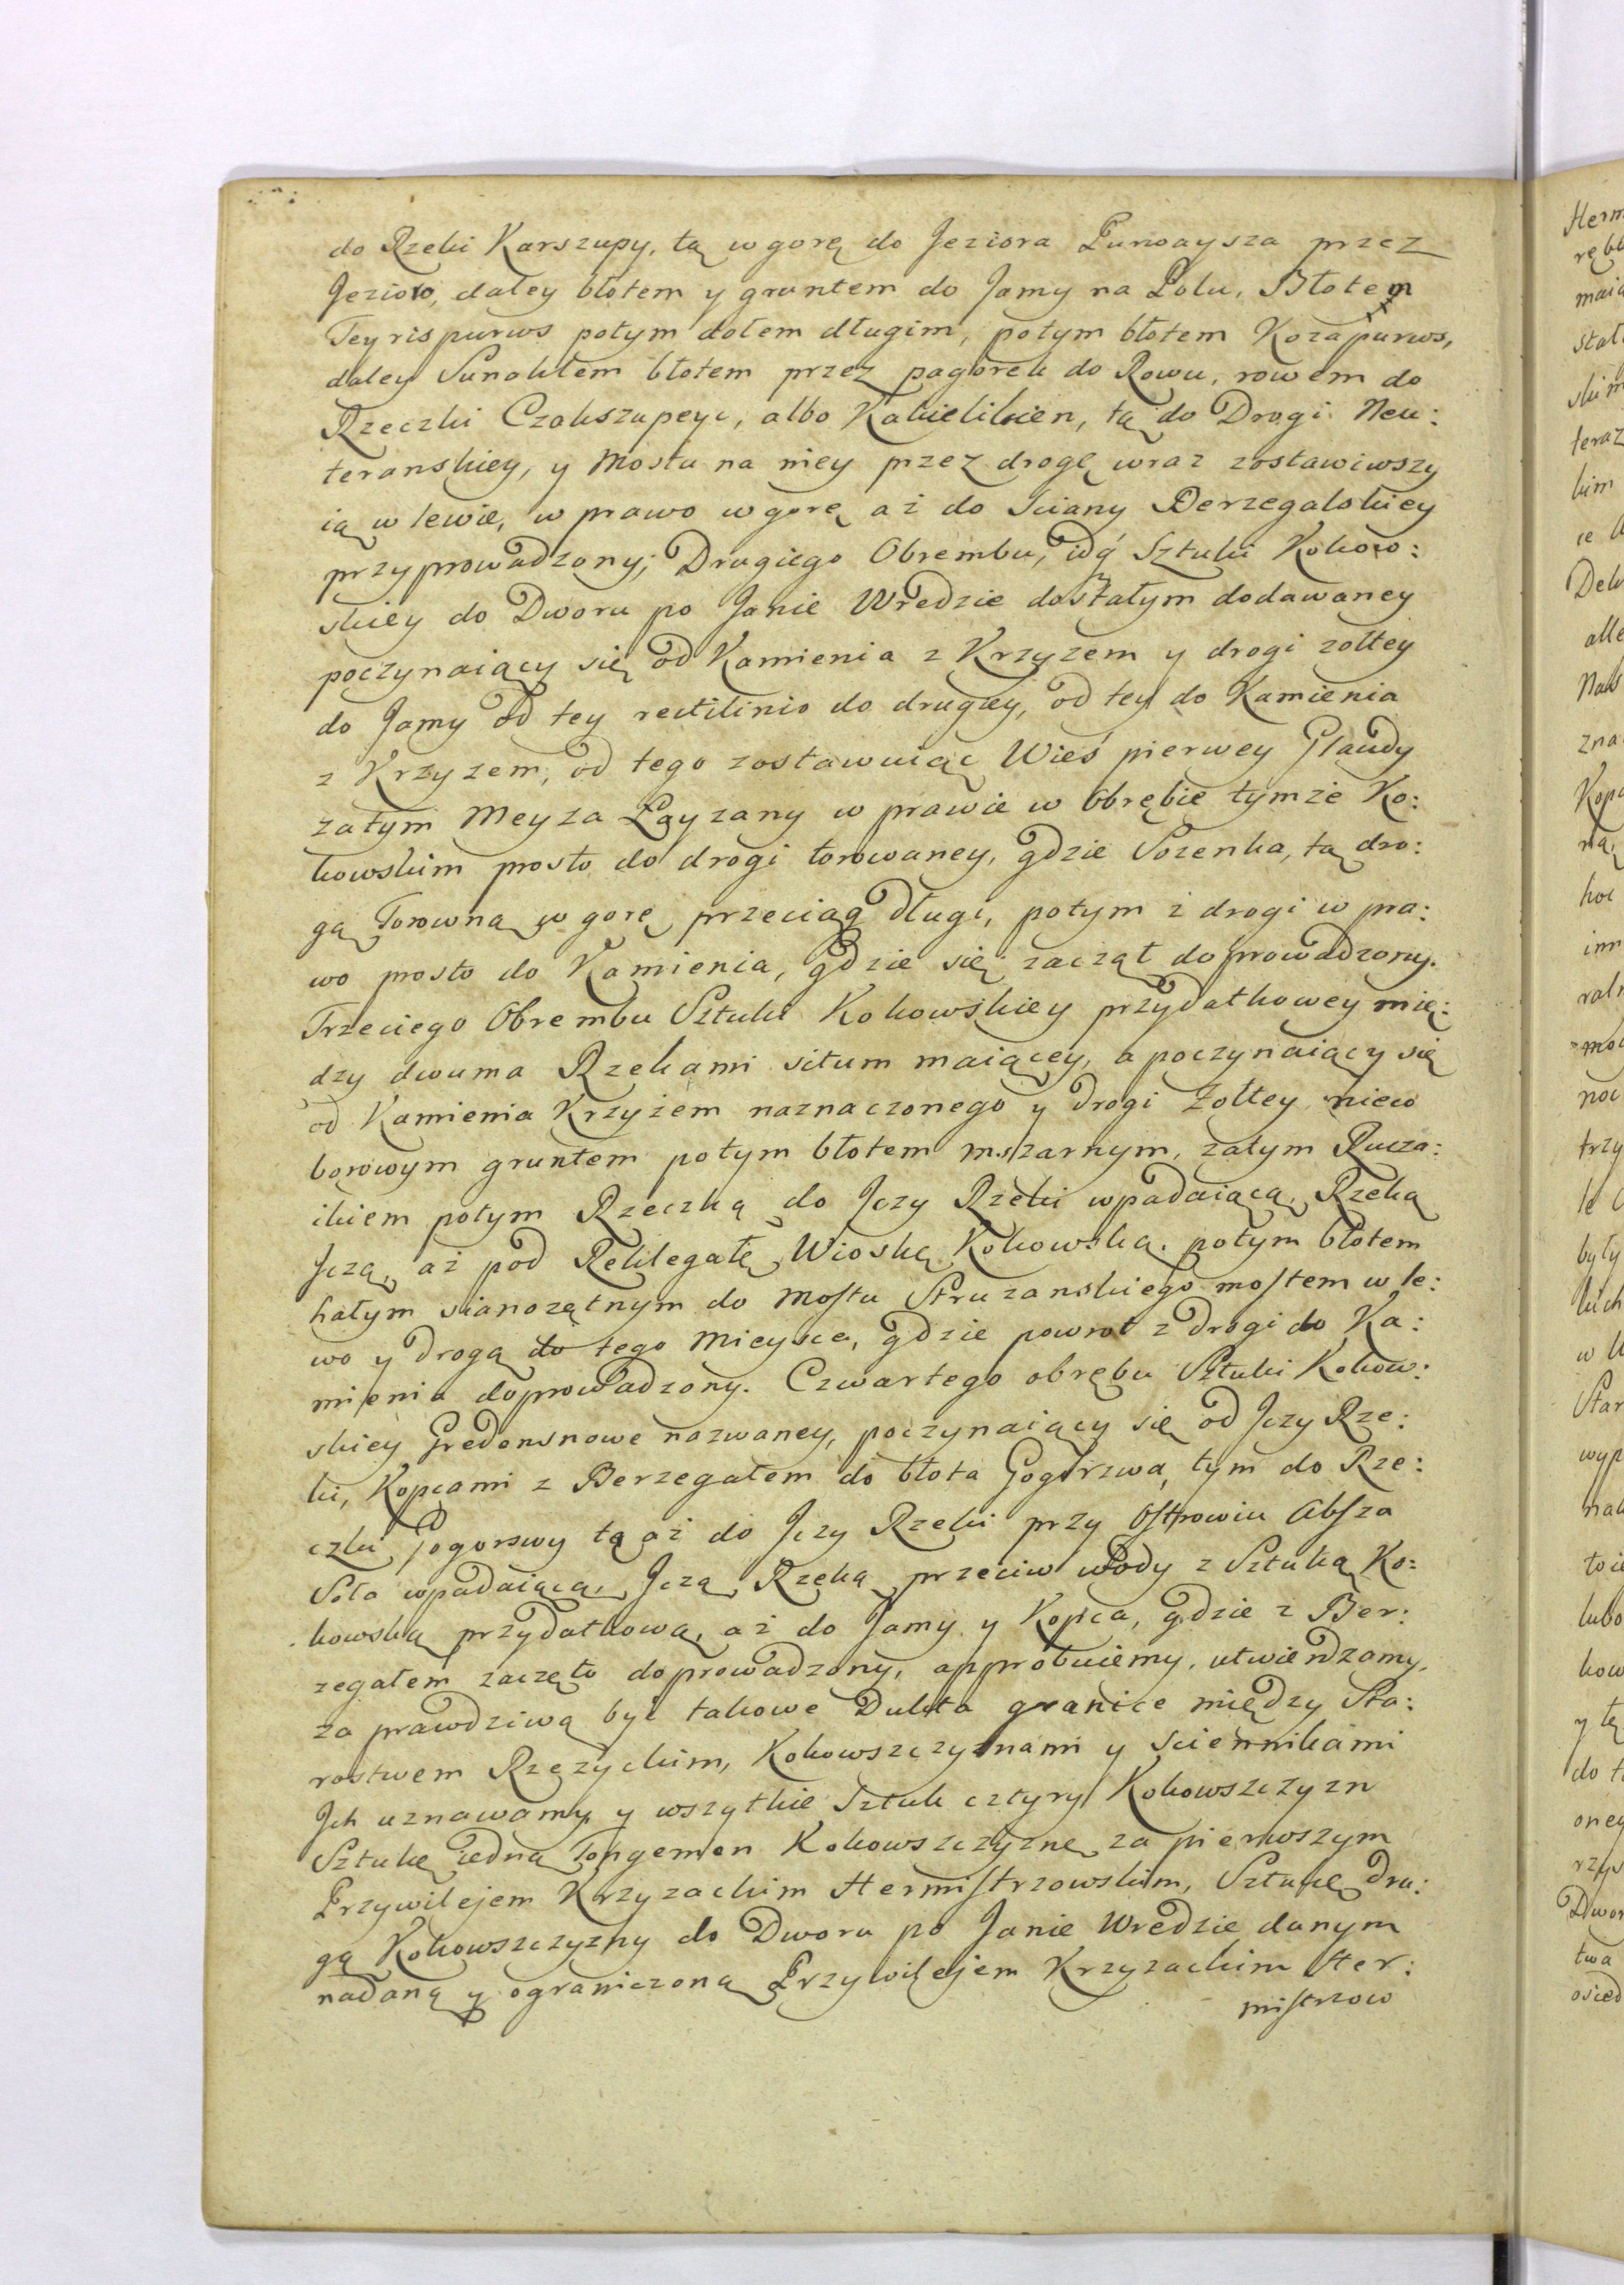 do Rzeki Karszupy, tą w gorę do Jeziora Purwaysza przez
Jezioro, daley błotem y gruntem do Jamy na Polu, Błotem
Teyrispurws potym dołem długim, potym błotem Kozapurws,
daley Sunakłem błotem przez pagorek do Rowu, rowem do
Rzeczki Czakszupeyc, albo Kakielikien, tą do Drogi Neu:
teranskiey, y Mostu na niey przez drogę wraz zostawiwszy
ią w lewie, w prawo w gorę aż do Sciany Berzegalskiey
przyprowadzony; Drugiego Obrembu, Sztuki Kokow:
skiey do Dworu po Janie Wredzie dostałym dodawaney
poczynaiący się od Kamienia z Krzyzem y drogi zołtey
do Jamy od tey rectilinio do drugiey, od tey do Kamienia
z Krzyzem, od tego zostawuiąc Wieś pierwey Glaudy
zatym Meyza Łayzany w prawie w Obrębie tymże Ko:
kowskim prosto do drogi torowaney, gdzie Sozenka, tą dro:
gą Torowną w gorę przeciąg długi, potym z drogi w pra:
wo prosto do Kamienia, gdzie się zaczął doprowadzony.
Trzeciego Obrembu Sztuki Kokowskiey przydatkowey mię:
dzy dwuma Rzekami situm maiącey, a poczynaiący się
od Kamienia Krzyżem naznaczonego y drogi Żołtey nieco
borowym gruntem potym błotem mszarnym, zatym Rucza:
ikiem potym Rzeczką do Jczy Rzeki wpadaiącą, Rzeką
Jczą, aż pod Rekilegatę Wioskę Kokowską. potym błotem
hałym sianozętnym do Mostu Struzanskiego mostem w le:
wo y drogą do tego Mieysca, gdzie powrot z drogi do Ka:
mienia doprowadzony. Czwartego obrębu Sztuki Kokow:
skiey Gredensnowe nazwaney, poczynaiący się od Jczy Rze:
ki, Kopcami z Berzegałem do błota Gogorzwa, tym do Rze:
czki Pogorswy tą aż do Jczy Rzeki przy Ostrowiu Absza
Soła wpadaiącą, Jczą Rzeką przeciw wody z Sztuką Ko:
kowską przydatkową, aż do Jamy y Kopca, gdzie z Ber:
zegałem zaczęto doprowadzony, approbuiemy, utwierdzamy,
za prawdziwą być takowe Dukta granice między Sta:
rostwem Rzezyckim, Kokowszczyznami y sciennikami
Jch uznawamy y wszytkie Sztuk cztyry Kokowszczyzn
Sztukę iedną Tongemon Kokowszczyznę za pierwszym
Przywilejem Krzyzackim Hermistrzowskim, Sztukę dru:
gą Kokowszczyzny do Dworu po Janie Wredzie danym
nadaną y ograniczoną Przywilejem Krzyzackim Her:
mistrzow